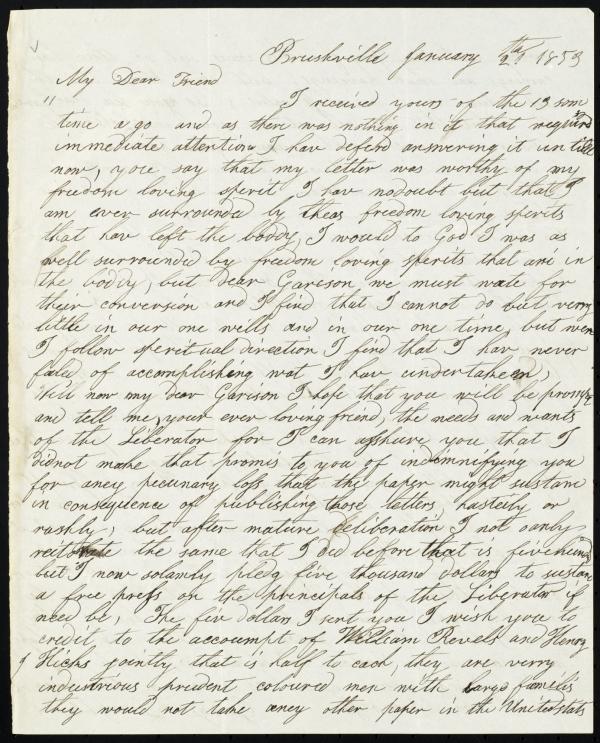 Brushville January 2th 1853
My Dear Friend
" I received yours of the 13 som
time a go and as there was nothing in it that required
immediate attention I have defend answering it un till
now, you say that my letter was worthy of my
freedom loving sperit I hav nodoubt but that I
am ever surrounded by theas freedom loving sperits
that hav left the boddy, I would to God I was as
well surrounded by freedom loving sperits that are in
the boddy, but dear Garison we must wate for
their conversion and I find that I cannot do but verry
little in our one wills and in our one time, but wen
I follow speritual direction I find that I hav never
faled of accomplishing wat I hav undertakeen,
Will now my dear Garison I hope that you will be
and tell me, your ever loving friend, the needs and wants
of the Liberator for I can ashure you that I
didnot make that promis to you of indemnifying you
for aney pecunary loss that the paper might sustane
in consequence of publishing those letters hasteily or
rashly, but after mature deliberation I not oanly
the same that I did before that is five hund
but I now solamly pledg five thousand dollars to sustane
a free press on the principals of the Liberator if
need be, The five dollars I sent you I wish you to
credit to the accoumpt of William Revels and Henry
Hicks jointly that is half to each, they are verry
industrious prudent coloured men with large familis
they would not take aney other paper in the United stats